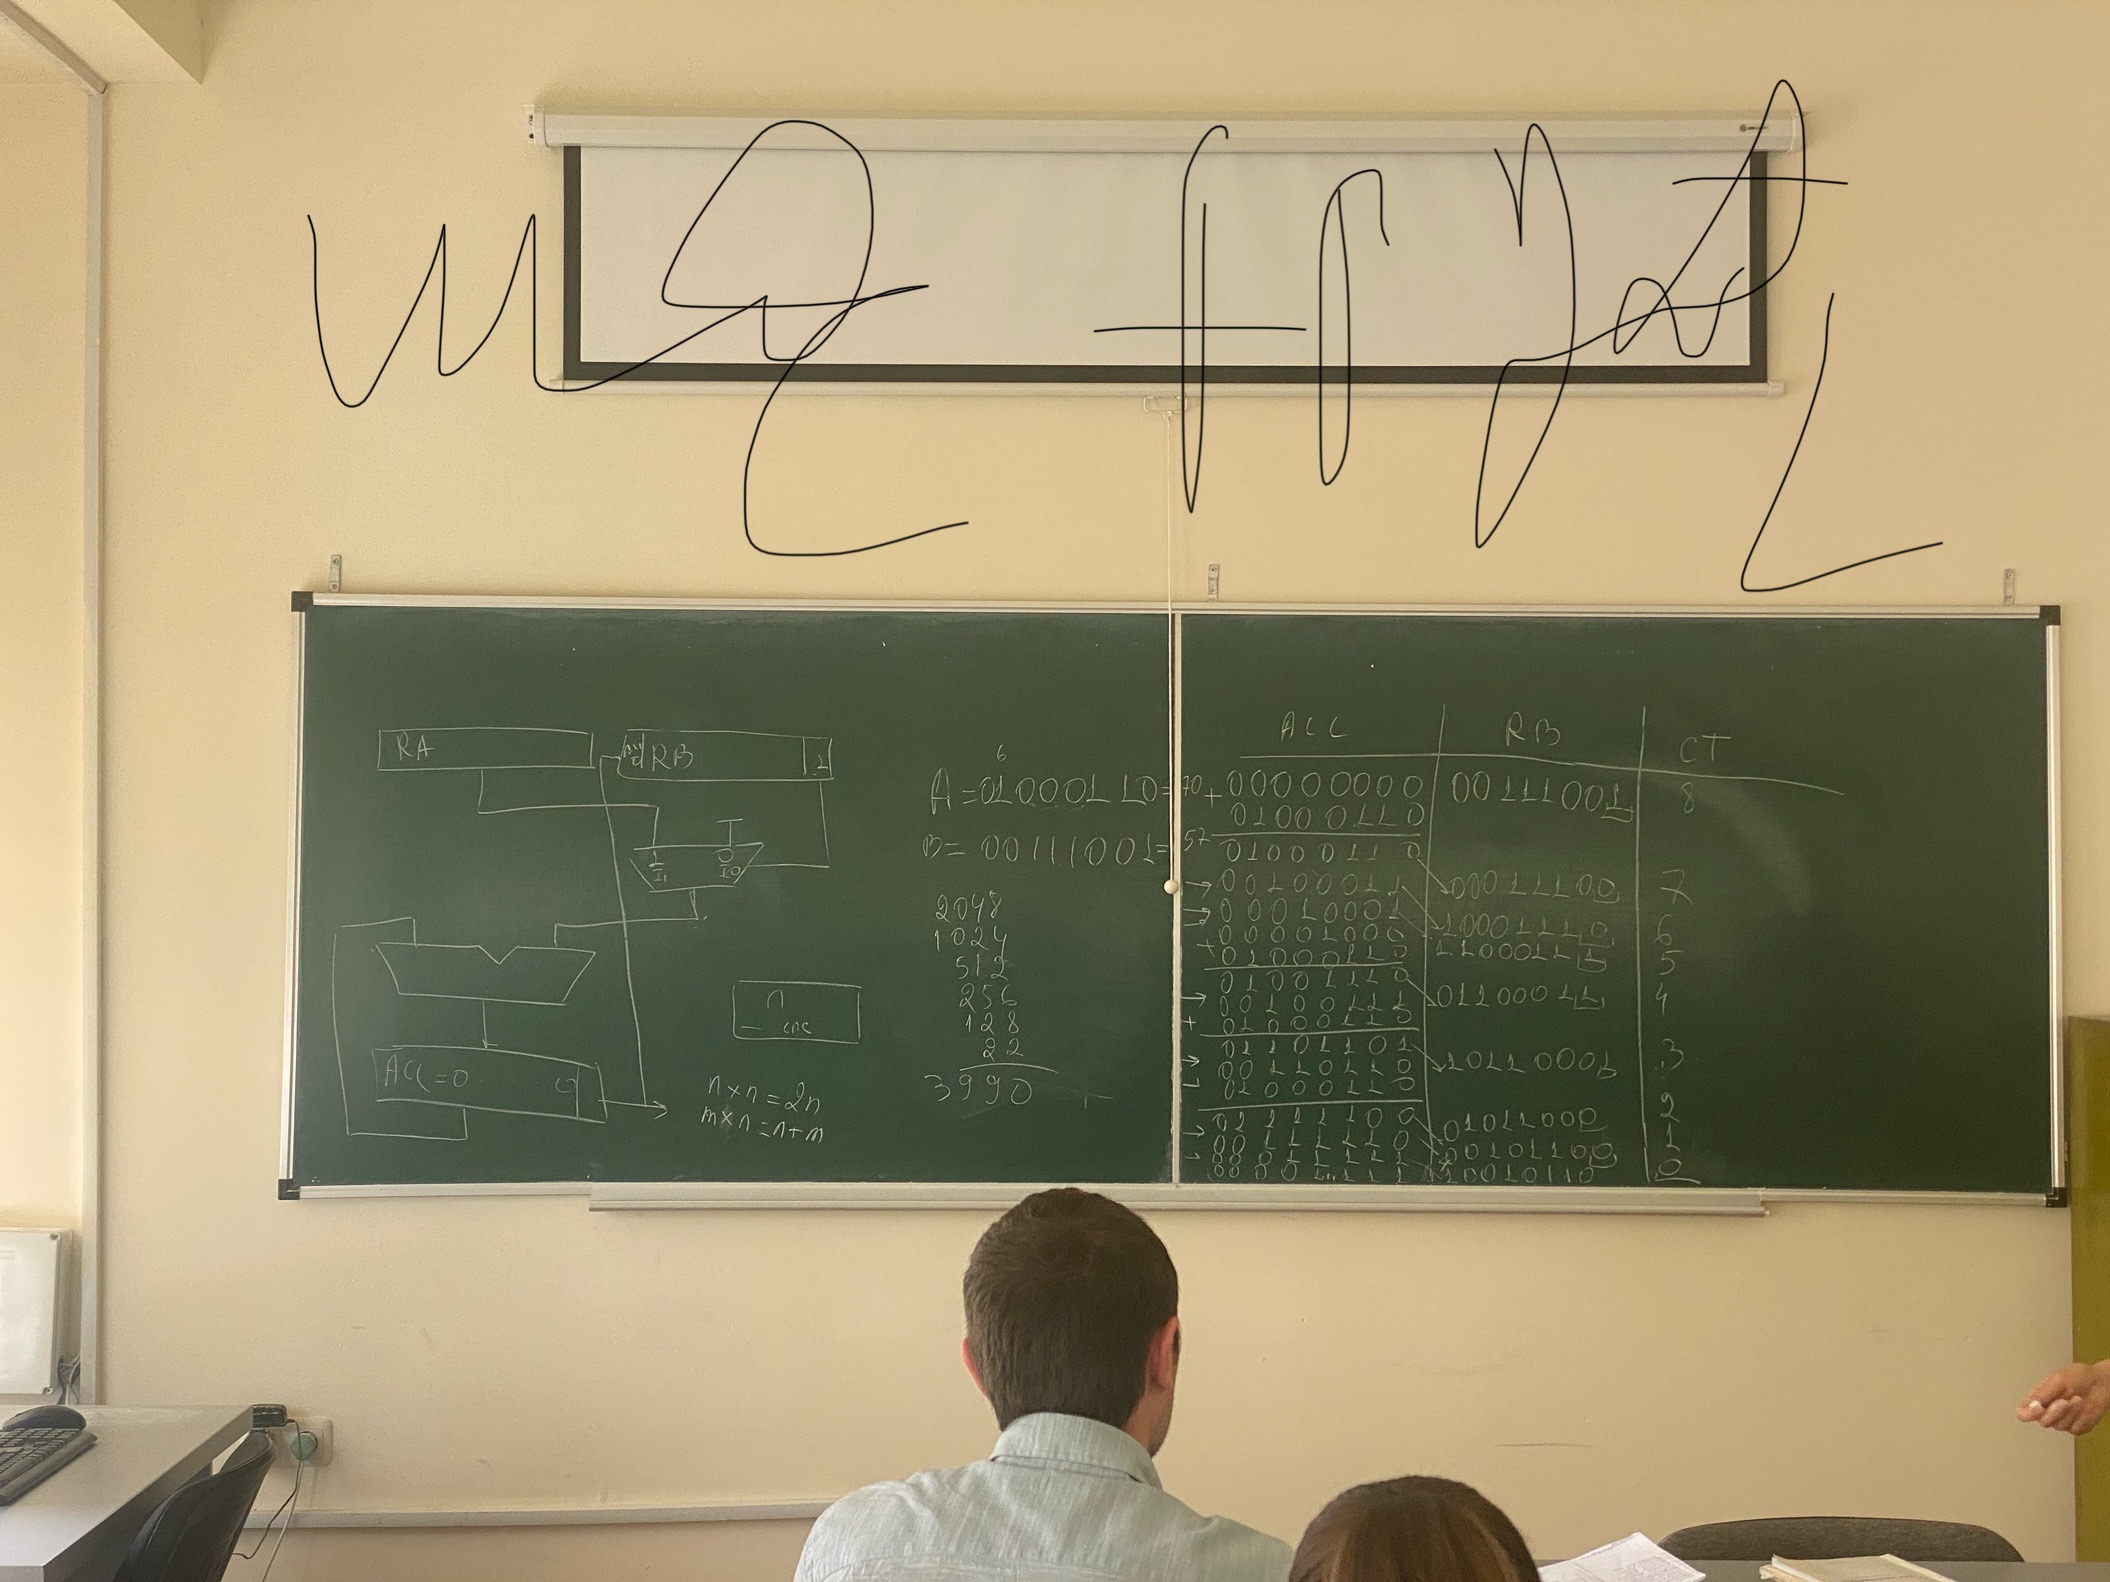 RA
RB
1
0
I₁
I0
ACC=0
n × n = 2n
m × n = n+m
6
A = 01000110 = 70
B = 00111001 = 57
2048
1024
512
256
128
22
3990
ACC RB CT
+ 00000000 00111001 8
01000110
01000110
→ 00100011 00011100 7
→ 00010001 10001110 6
00001000 11000111 5
+ 01000110
01001110
→ 00100111 01100011 4
+ 01000110
01101101
→ 00110110 10110001 3
01000110
01111100
→ 00111110 01011000 2
00011111 00101100 1
10010110 0